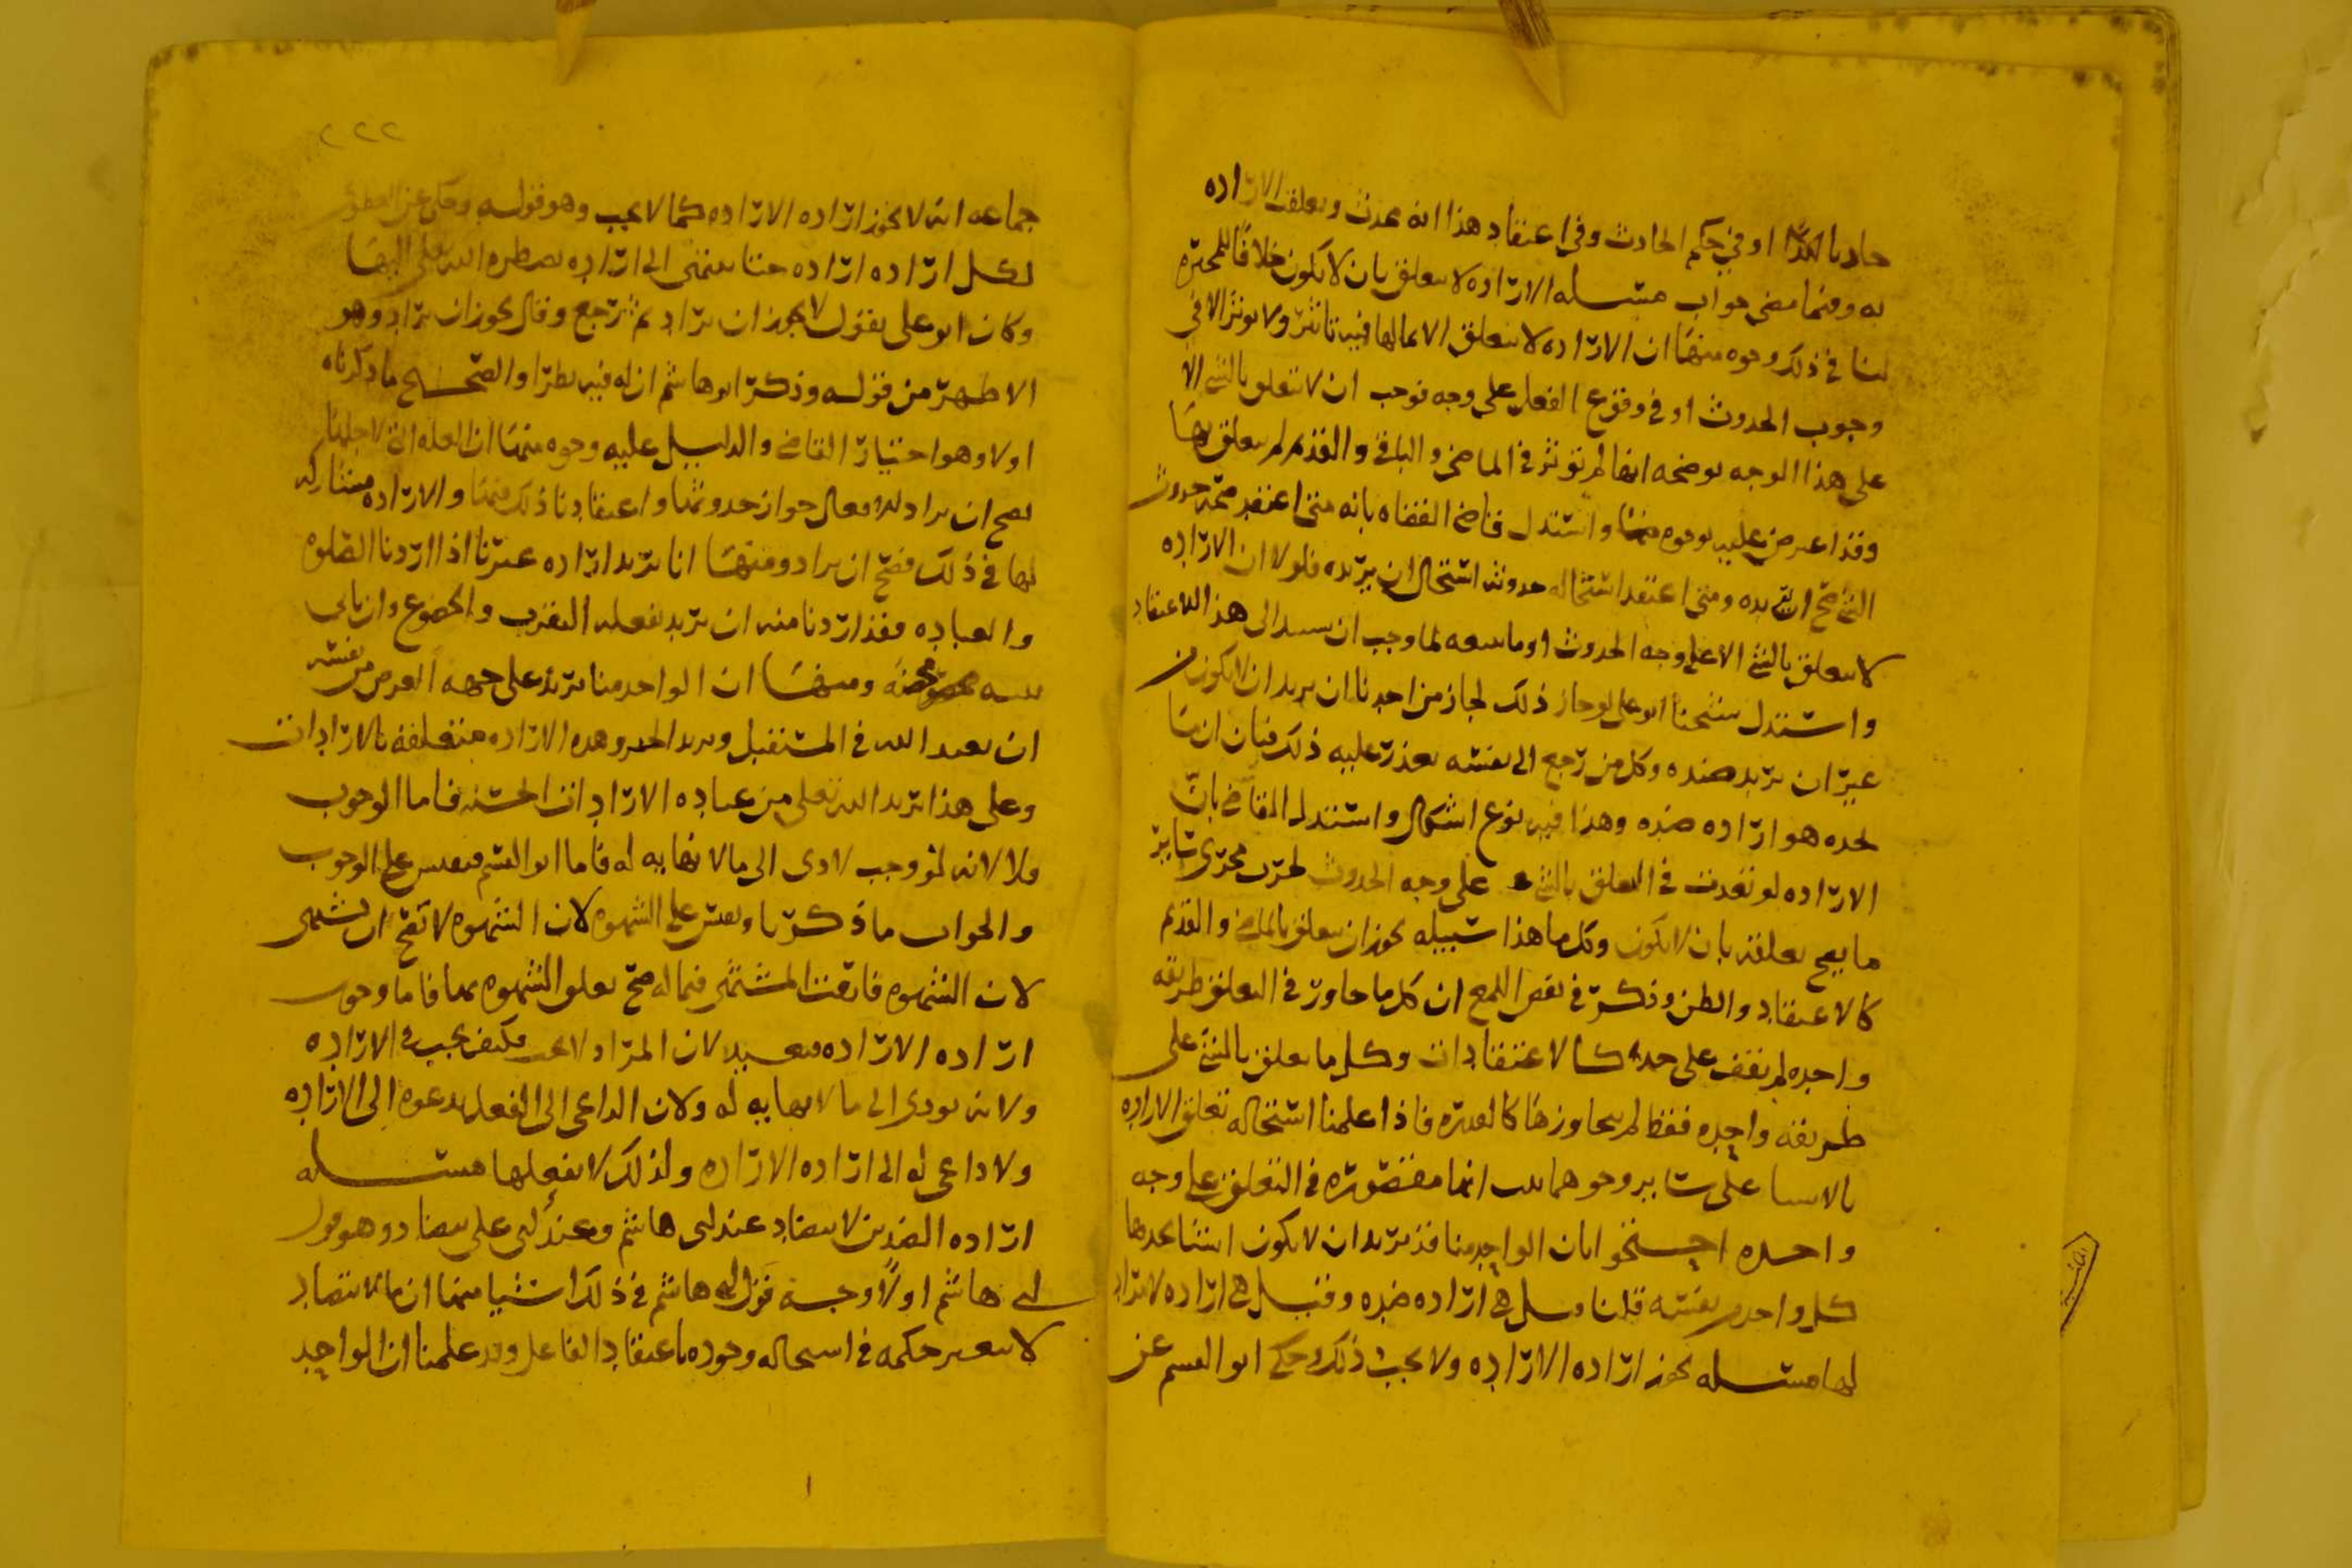 حادثا او في حكم الحادث وفي اعتقاد هذا انه محدث وتعلقت الارادة
به وفيما مضى جواب مسله الارادة لا تتعلق بان لا يكون خلافا للمجبرة
لنا في ذلك وجوه منها ان الارادة لا تتعلق الا بما لها فيه تاثير ولا توثر الا في
وجوب الحدوث او في وقوع الفعل على وجه فوجب ان لا تتعلق بالشي الا
على هذا الوجه يوضحه انها لم توثر في الماضي والباقي والقديم لم تتعلق بها
وقد اعترض عليه بوجوه واستدل قاضي القضاه بانه متى اعتقد صحة حدوث
الشي صح ان يريده ومتى اعتقد استحاله حدوثه استحال ان يريده فلولا ان الارادة
لا تتعلق بالشي الا على وجه الحدوث او ما يتبعه لما وجب ان يستند الى هذا الاعتقاد
واستدل شيخنا ابو علي لو جاز ذلك لجاز من احدنا ان يريد ان لا يكون من
غير ان يريد ضده وكل من رجع الى نفسه تعذر عليه ذلك فبان ان ما
نجده هو اراده ضده وهذا فيه نوع اشكال واستدل القاضي بان
الاراده لو تعدت في التعلق بالشي على وجه الحدوث لجرت مجرى ساير
ما يصح تعلقه بان لا يكون وكل ما هذا سبيله يجوز ان يتعلق بالماضي والقديم
كالاعتقاد والظن وذكر في بعض اللمع ان كل ما جاوز في التعلق طريقه
واحده لم يقف على حد كالاعتقادات وكل ما تعلق بالشي على
طريقه واحده فقط لم يجاوزها كالقدره فاذا علمنا استحاله تعلق الاراده
بالاشيا على ساير وجوهها انها مقصوره في التعلق على وجه
واحده احتجوا بان الواحد منا قد يريد ان لا يكون اشيا يجدها
كل واحد من نفسه قلنا وقيل هي اراده ضده وقيل هي اراده لا مراد
لها مسله يجوز اراده الاراده ولا يجب ذلك وحكى ابو القسم عن
٢٢٢
جماعه انه لا يجوز اراده الاراده كما لا يجب وهو قوله وحكى عن
لكل اراده اراده حتى ينتهي الى اراده يضطره الله تعالى اليها
وكان ابو علي يقول لا يجوز ان يراد ثم رجع وقال يجوز ان يراد وهو
الاظهر من قوله وذكر ابو هاشم ان له فيه نظرا والصحيح ما ذكرناه
اولا وهو اختيار القاضي والدليل عليه وجوه منها ان العله التي لاجلها
يصح ان يراد الافعال جواز حدوثها واعتقادنا ذلك فيها والاراده مشاركه
لها في ذلك فصح ان يراد ومنها انا نريد اراده غيرنا اذا اردنا الصلوه
والعباده فقد اردنا منه ان يريد بفعله التقرب والخضوع وان ياتي
مخصوصه ومنها ان الواحد منا يريد على جهه العزم من نفسه
ان يعبد الله في المستقبل ويريد الخير وهذه الاراده متعلقه بالارادات
وعلى هذا يريد الله تعالى من عباده الارادات الحسنه فاما الوجوب
فلا لانه لو وجب لادى الى ما لا نهايه له فاما ابو القسم فيقيس على الوجوب
والجواب ما ذكرنا ويقيس على الشهوه لان الشهوه لا تصح ان تشتهى
لان الشهوه فارقت المشتهى فيما له صح تعلق الشهوه بها فاما وجوب
اراده الاراده فبعيد لان المراد لا يجب فكيف يجب في الاراده
ولانه يودي الى ما لا نهايه له ولان الداعي الى الفعل يدعوه الى الاراده
ولا داعي له الى اراده الاراده ولذلك لا يفعلها مسله
اراده الضدين لا يتضاد عند ابي هاشم وعند ابي علي يتضاد وهو قول
ابي هاشم اولا وجه قول ابي هاشم في ذلك اشيا منها ان ما لا يتضاد
لا يتغير حكمه في استحاله وجوده باعتقاد الفاعل وقد علمنا ان الواحد